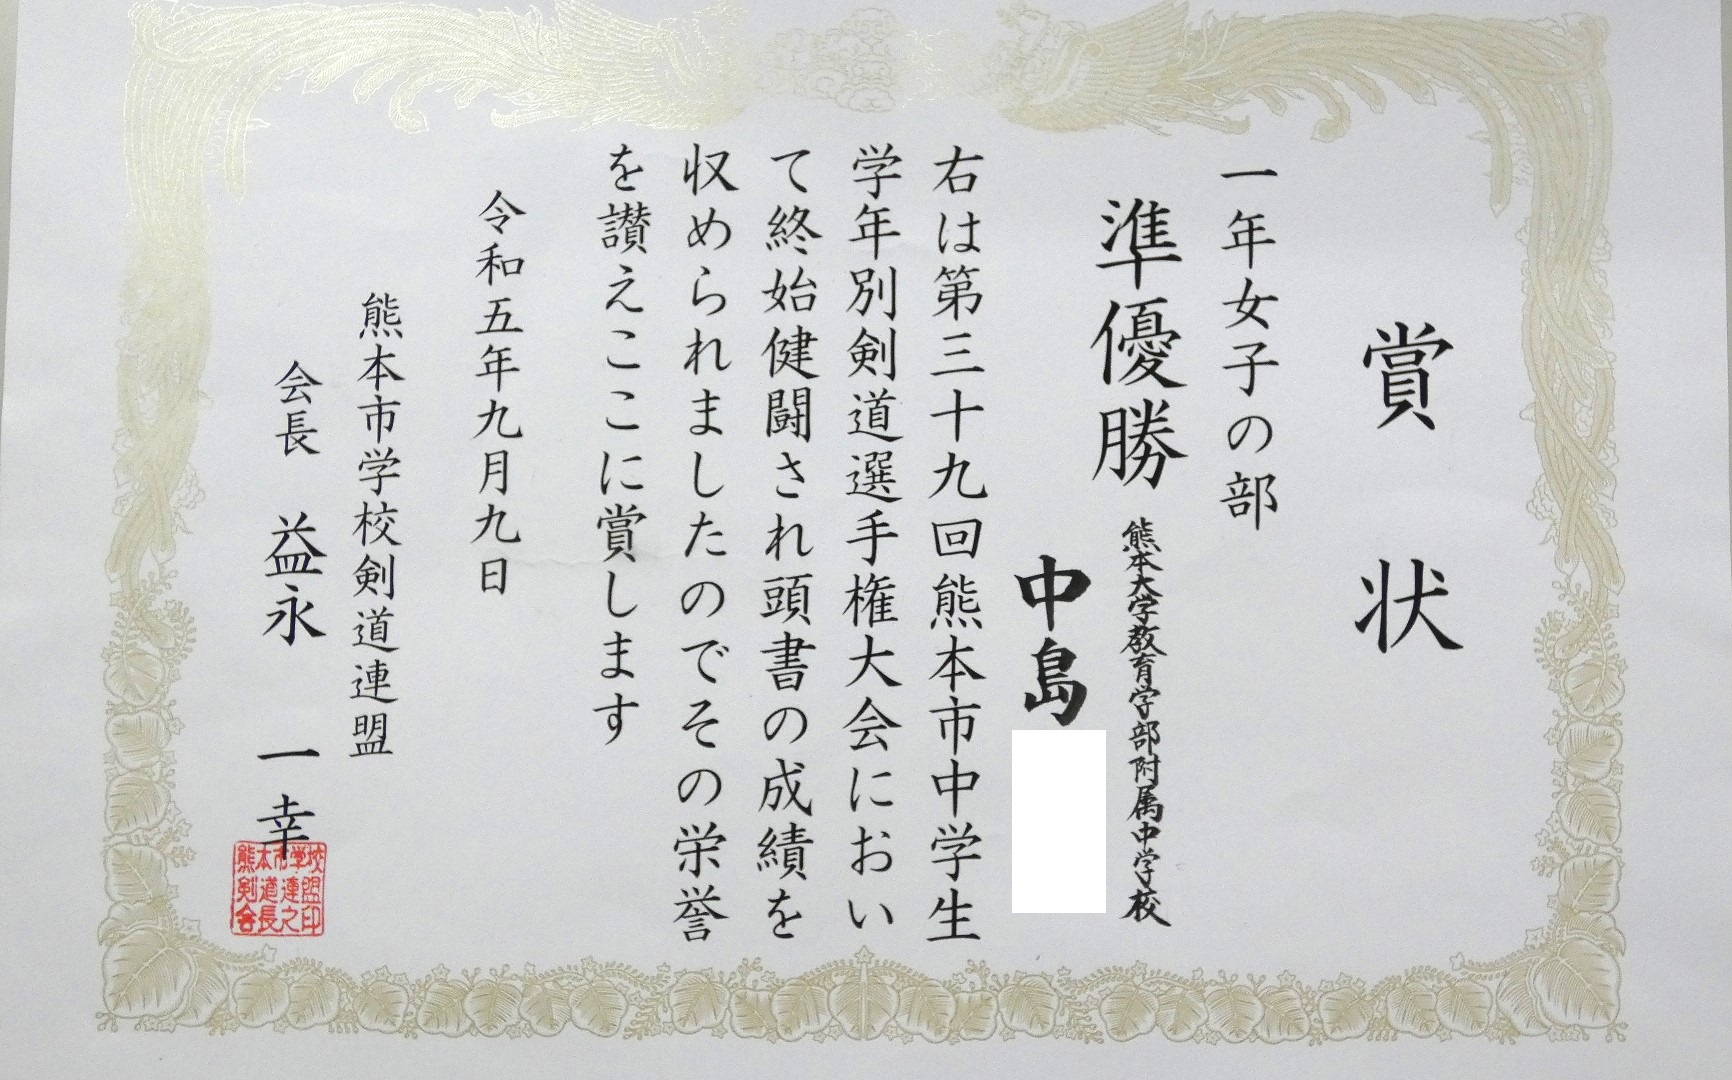 賞状
一年女子の部
準優勝
熊本大学教育学部附属中学校
中島
右は第三十九回熊本市中学生
学年別剣道選手権大会におい
て終始健闘され頭書の成績を
収められましたのでその栄誉
を讃えここに賞します
令和五年九月九日
熊本市学校剣道連盟
会長 益永一幸
熊本市学校
剣道連盟
会長之印